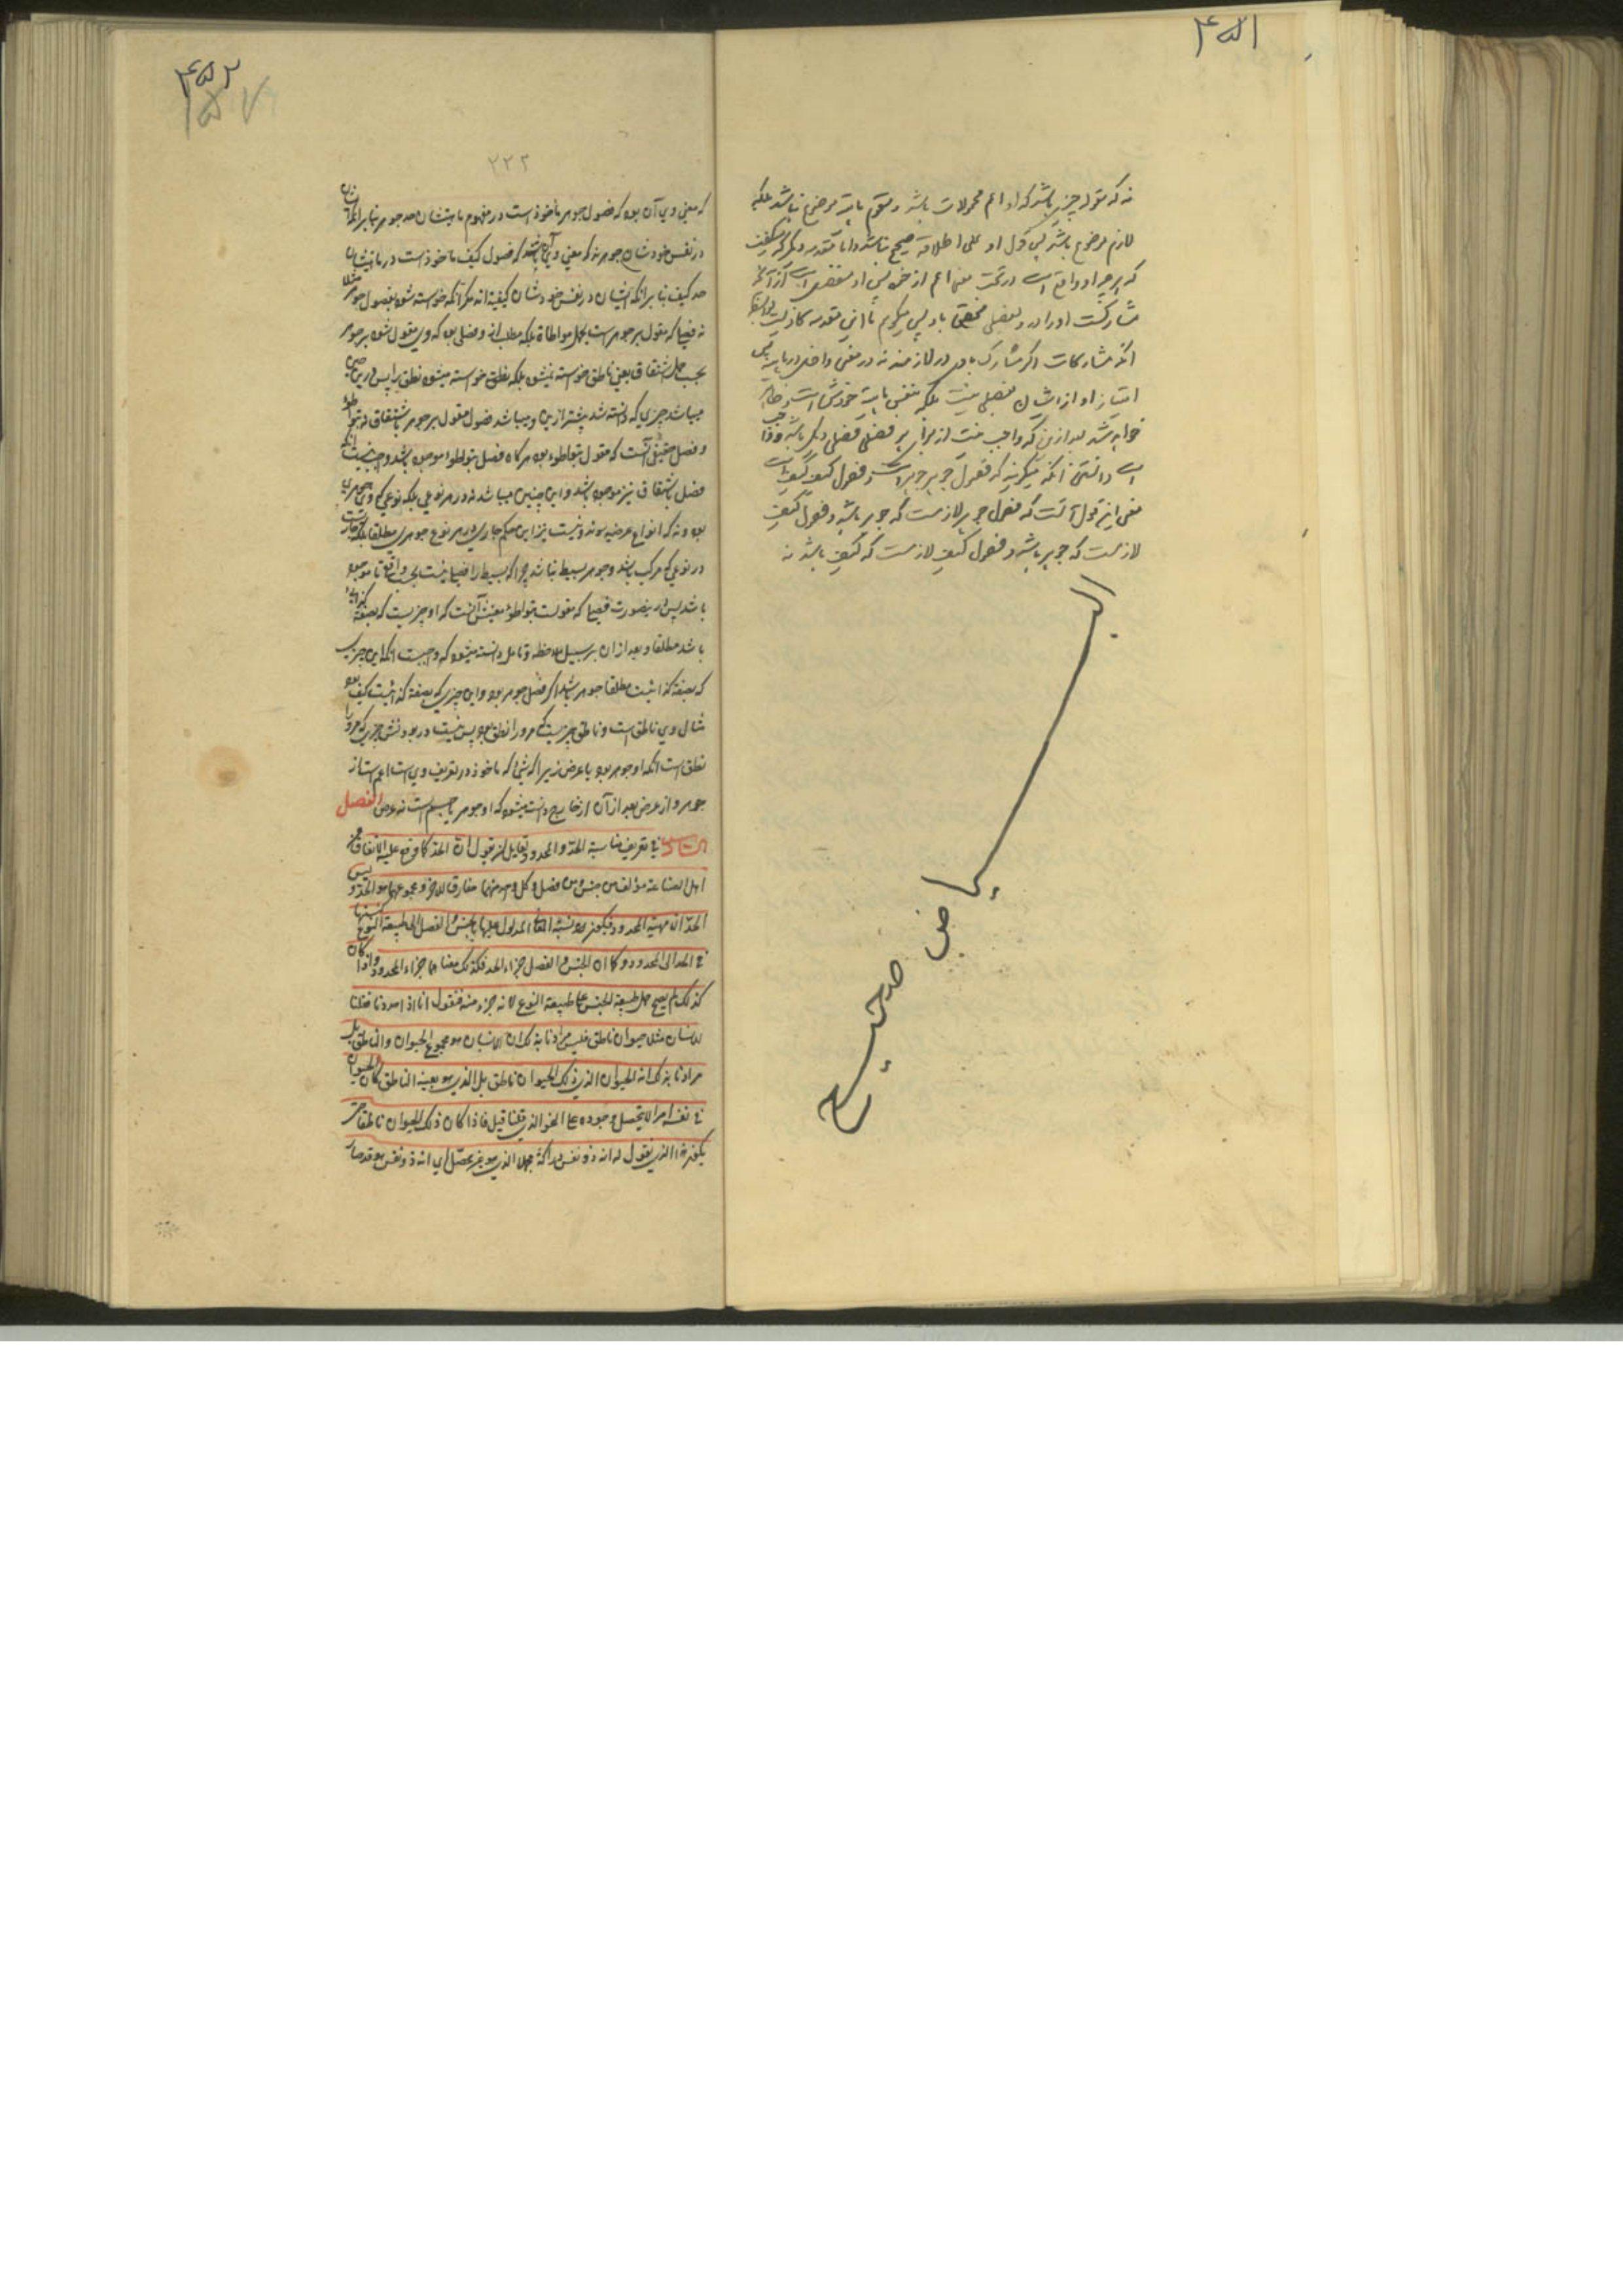 ۴۵۱
نه که مقوله چیزی باشد که او اعم محمولات باشد و مقوم ماهیة موضوع نباشد بلکه
لازم موضوع باشد پس قول او علی اطلاقه صحیح نباشد و اما مقدمه دیگر که میگفت
که هر چه او واقع است در تحت معنی اعم از خود پس او منفصل است از آنکه
مشارکست او را در بفصلی مختص باو پس میگویم تا این مقدمه کاذبست
آنکه مشارکات اگر مشارک باو در لازمند نه در معنی داخل در ماهیة پس
امتیاز او از ایشان بفصلی نیست بلکه بنفس ماهیة خودش است و ظاهر
خواهد شد بعد ازین که واجب نیست از برای هر فصلی فصلی دیگر باشد و
است دانستن آنکه میگویند که فصول جوهر جوهر است و فصول کیف کیف است
معنی این قول آنست که فصول جوهر لازمست که جوهر باشد و فصول کیف
لازمست که جوهر باشد و فصول کیف لازمست که کیف باشد نه
البیاض صحیح
۴۵۲
۱۵۷
۲۲۲
که معنی وی آن بود که فصول جوهر مأخوذ است در مفهوم ماهیتشان حد جوهر بنابر آنکه ایشان
در نفس خودشان جوهرند که معنی وی آن باشد که فصول کیف ماخوذ است در ماهیتشان
حد کیف بنابر آنکه ایشان در نفس خودشان کیفیةاند مگر آنکه خواسته شود بفصول جوهر مثلا
نه فصلی که مقول بر جوهر است بحمل مواطاة بلکه مطلب از و فصلی بود که وی مقول شود بر جوهر
بحسب حمل اشتقاق یعنی ناطق خواسته نمیشود بلکه نطق خواسته میشود نطق را پس درین حین
میباشد چیزی که دانسته شد پیشتر ازین و میباشد فصول مقول بر جوهر باشتقاق نه بتواطؤ
و فصل حقیقی آنست که مقول بتواطؤ بود هر گاه فصل بتواطؤ موجود باشد واجب نیست آنکه
فصل باشتقاق نیز موجود باشد و این چنین میباشد نه در هر نوعی بلکه نوعی که وی جوهری
بود و نه که انواع عرضیه بوند و نیست نیز این حکم جاری در هر نوع جوهری مطلقا بلکه جاریست
در نوعی که مرکب باشد و جوهر بسیط نباشد چرا که بسیط را فصلی نیست بحسب واقع تا موجود
باشد پس درینصورت فصلی که مقولست بتواطؤ معینش آنست که او چیزیست که بصفة کذائیه
باشد مطلقا و بعد از ان بر سبیل ملاحظه و تامل دانسته میشود که واجبست آنکه این چیزیست
که بصفة کذائیست مطلقا جوهر باشد اگر فصل جوهر بود و این چیزی که بصفة کذائیست کیف بود
مثال وی ناطق است و ناطق چیزیست که مر او را نطق بود پس نیست در بودنش چیزی که مر او را
نطق است آنکه او جوهر بود یا عرض زیرا که شئ که ماخوذ در تعریف وی است اعم است از
جوهر و از عرض بعد از آن از خارج دانست میشود که او جوهر یا جسم است نه عرض الفصل
فی تعریف مناسبة الحد و المحدود و تعایل نقول ان الحد کما وقع علیه الاتفاق من
اهل الصناعة مؤلف من جنس و من فصل و کل واحد منهما مفارق للآخر و مجموعهما هو الحد و لیس
الحد الا مهیة المحدود فیکون نسبة المعانی المدلول علیها بالجنس و الفصل الی طبیعة النوع کنسبتها
فی الحد الی المحدود و کما ان الجنس و الفصل جزءا الحد فکذلک معناهما جزءا المحدود و اذا کان
کذلک لم یصح حمل طبیعة الجنس علی طبیعة النوع لانه جزء منه فنقول انا اذا حددنا فقلنا
الانسان مثلا حیوان ناطق فلیس مرادنا بذلک ان الانسان هو مجموع الحیوان و الناطق بل
مرادنا بذلک انه الحیوان الذی ذلک الحیوان ناطق بل الذی هو بعینه الناطق کأن الحیوان
فی نفسه امر لا یتحصل وجوده علی النحو الذی قلنا قبل فاذا کان ذلک الحیوان ناطقا حتی
یکون هذا الذی نقول له انه ذو نفس دراکة مجملا الذی هو غیر محصل ای انه ذو نفس هو قد صار